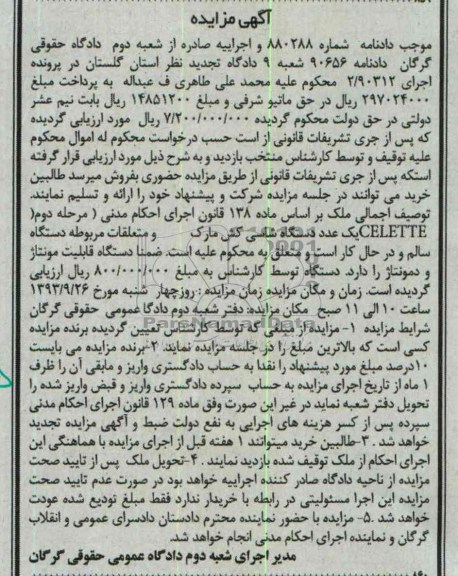 آگهی مزایده
موجب دادنامه شماره ۸۸۰۲۸۸ و اجراییه صادره از شعبه دوم دادگاه حقوقی
گرگان دادنامه ۹۰۶۵۶ شعبه ۹ دادگاه تجدید نظر استان گلستان در پرونده
اجرای ۲/۹۰۳۱۲ محکوم علیه محمد علی طاهری ف عبداله به پرداخت مبلغ
۲۹۷۰۲۴۰۰۰ ریال در حق ماتیو شرفی و مبلغ ۱۴۸۵۱۲۰۰ ریال بابت نیم عشر
دولتی در حق دولت محکوم گردیده ۷/۲۰۰/۰۰۰/۰۰۰ ریال مورد ارزیابی گردیده
که پس از جری تشریفات قانونی از است حسب درخواست محکوم له اموال محکوم
علیه توقیف و توسط کارشناس منتخب بازدید و به شرح ذیل مورد ارزیابی قرار گرفته
استکه پس از جری تشریفات قانونی از طریق مزایده حضوری بفروش میرسد طالبین
خرید می توانند در جلسه مزایده شرکت و پیشنهاد خود را ارائه و تسلیم نمایند.
توصیف اجمالی ملک بر اساس ماده ۱۳۸ قانون اجرای احکام مدنی ( مرحله دوم(
CELETTEیک عدد دستگاه شاسی کش مارک و متعلقات مربوطه دستگاه
سالم و در حال کار است و متعلق به محکوم علیه است. ضمنا دستگاه قابلیت مونتاژ
و دمونتاژ را دارد. دستگاه توسط کارشناس به مبلغ ۸۰۰/۰۰۰/۰۰۰ ریال ارزیابی
گردیده است. زمان و مکان مزایده زمان مزایده : روزچهار شنبه مورخ ۱۳۹۳/۹/۲۶
ساعت ۱۰ الی ۱۱ صبح مکان مزایده: دفتر شعبه دوم دادگا عمومی حقوقی گرگان
شرایط مزایده ۱- مزایده از قیمتی که توسط کارشناس تعیین گردیده برنده مزایده
کسی است که بالاترین مبلغ را در جلسه مزایده نماید. ۲-برنده مزایده می بایست
۱۰درصد مبلغ مورد پیشنهاد را نقدا به حساب دادگستری واریز و مابقی آن را ظرف
۱ ماه از تاریخ اجرای مزایده به حساب سپرده دادگستری واریز و قبض واریز شده را
تحویل دفتر شعبه نماید در غیر این صورت وفق ماده ۱۲۹ قانون اجرای احکام مدنی
سپرده پس از کسر هزینه های اجرایی به نفع دولت ضبط و آگهی مزایده تجدید
خواهد شد .۳-طالبین خرید میتوانند ۱ هفته قبل از اجرای مزایده با هماهنگی این
اجرای احکام از ملک توقیف شده بازدید نمایند . ۴-تحویل ملک پس از تایید صحت
مزایده از ناحیه دادگاه صادر کننده اجراییه خواهد بود در صورت عدم تایید صحت
مزایده این اجرا مسئولیتی در رابطه با خریدار ندارد فقط مبلغ تودیع شده عودت
خواهد شد .۵- مزایده با حضور نماینده محترم دادستان دادسرای عمومی و انقلاب
گرگان و نماینده اجرای احکام مدنی انجام خواهد شد.
مدیر اجرای شعبه دوم دادگاه عمومی حقوقی گرگان